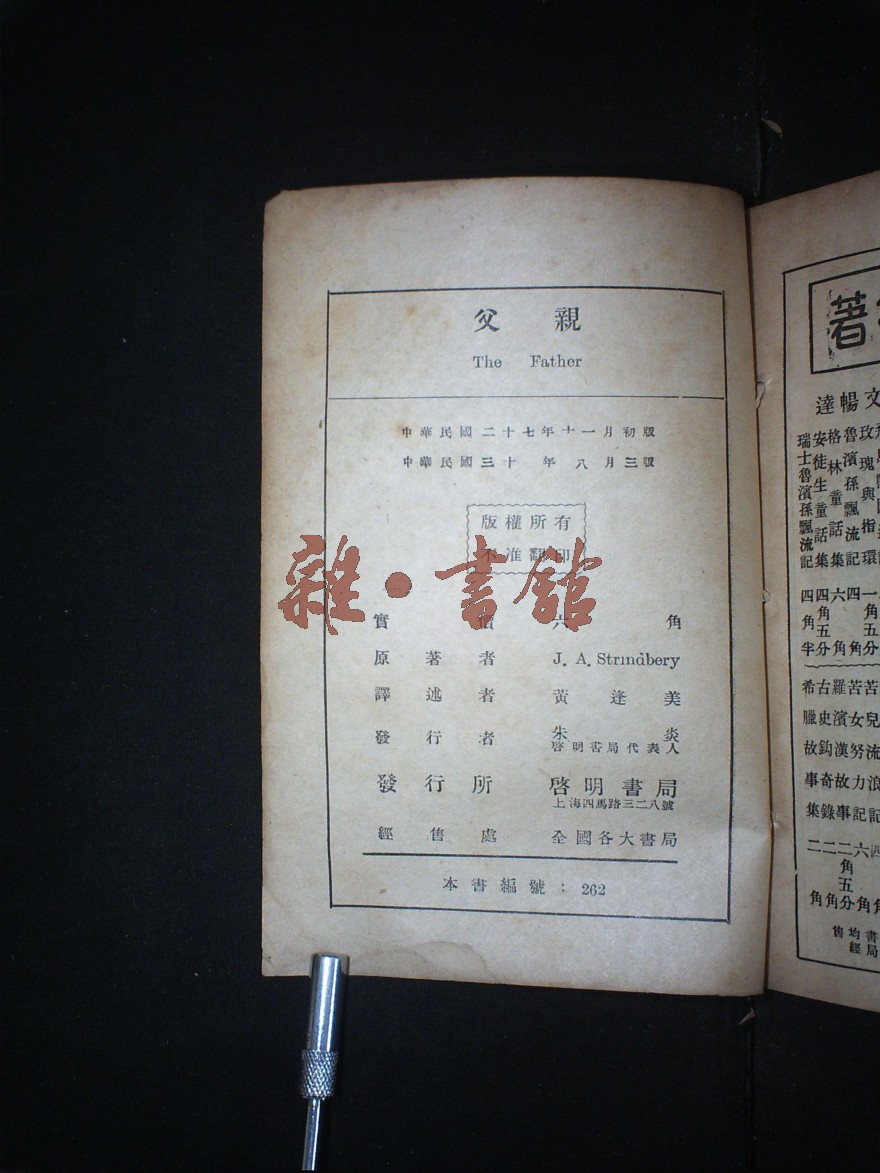 父親
The Father
中華民國二十七年十一月初版
中華民國三十年八月三版
版權所有
不准翻印
雜·書館
實價六角
原著者 J. A. Strindbery
譯述者 黃逢美
發行者 朱炎
啓明書局代表人
發行所 啓明書局
上海四馬路三二八號
經售處 全國各大書局
本書編號：262
著
文暢達
玫瑰與指環
魯濱孫飄流記
格林童話集
安徒生童話集
瑞士魯濱孫飄流記
四角
六角
四角五分
四角半
苦兒流浪記
苦女努力記
羅濱漢故事
古史鈎奇錄
希臘故事集
六角
二角五分
二角
二角
書局
均經
售